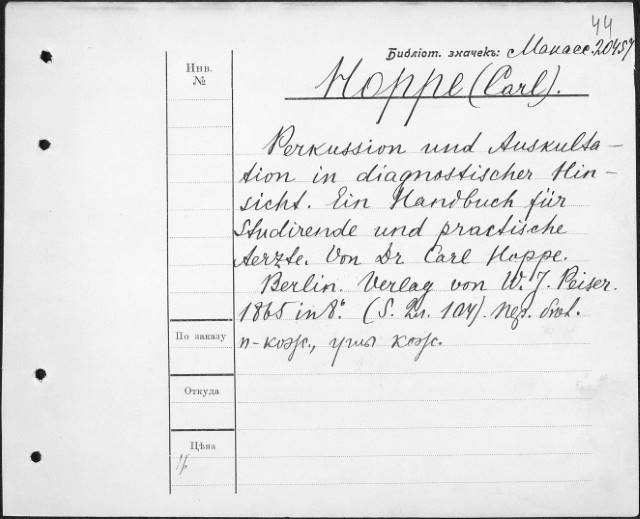 44
Библіот. значекъ: Манасс. 20457
Инв.
№
Hoppe (Carl).
Perkussion und Auskulta-
tion in diagnostischer Hin-
sicht. Ein Handbuch für
Studirende und practische
Aerzte. Von Dr Carl Hoppe.
Berlin. Verlag von W. J. Peiser.
1865 in 8°. (S. 104).
п-кож., углы кож.
По заказу
Откуда
Цѣна